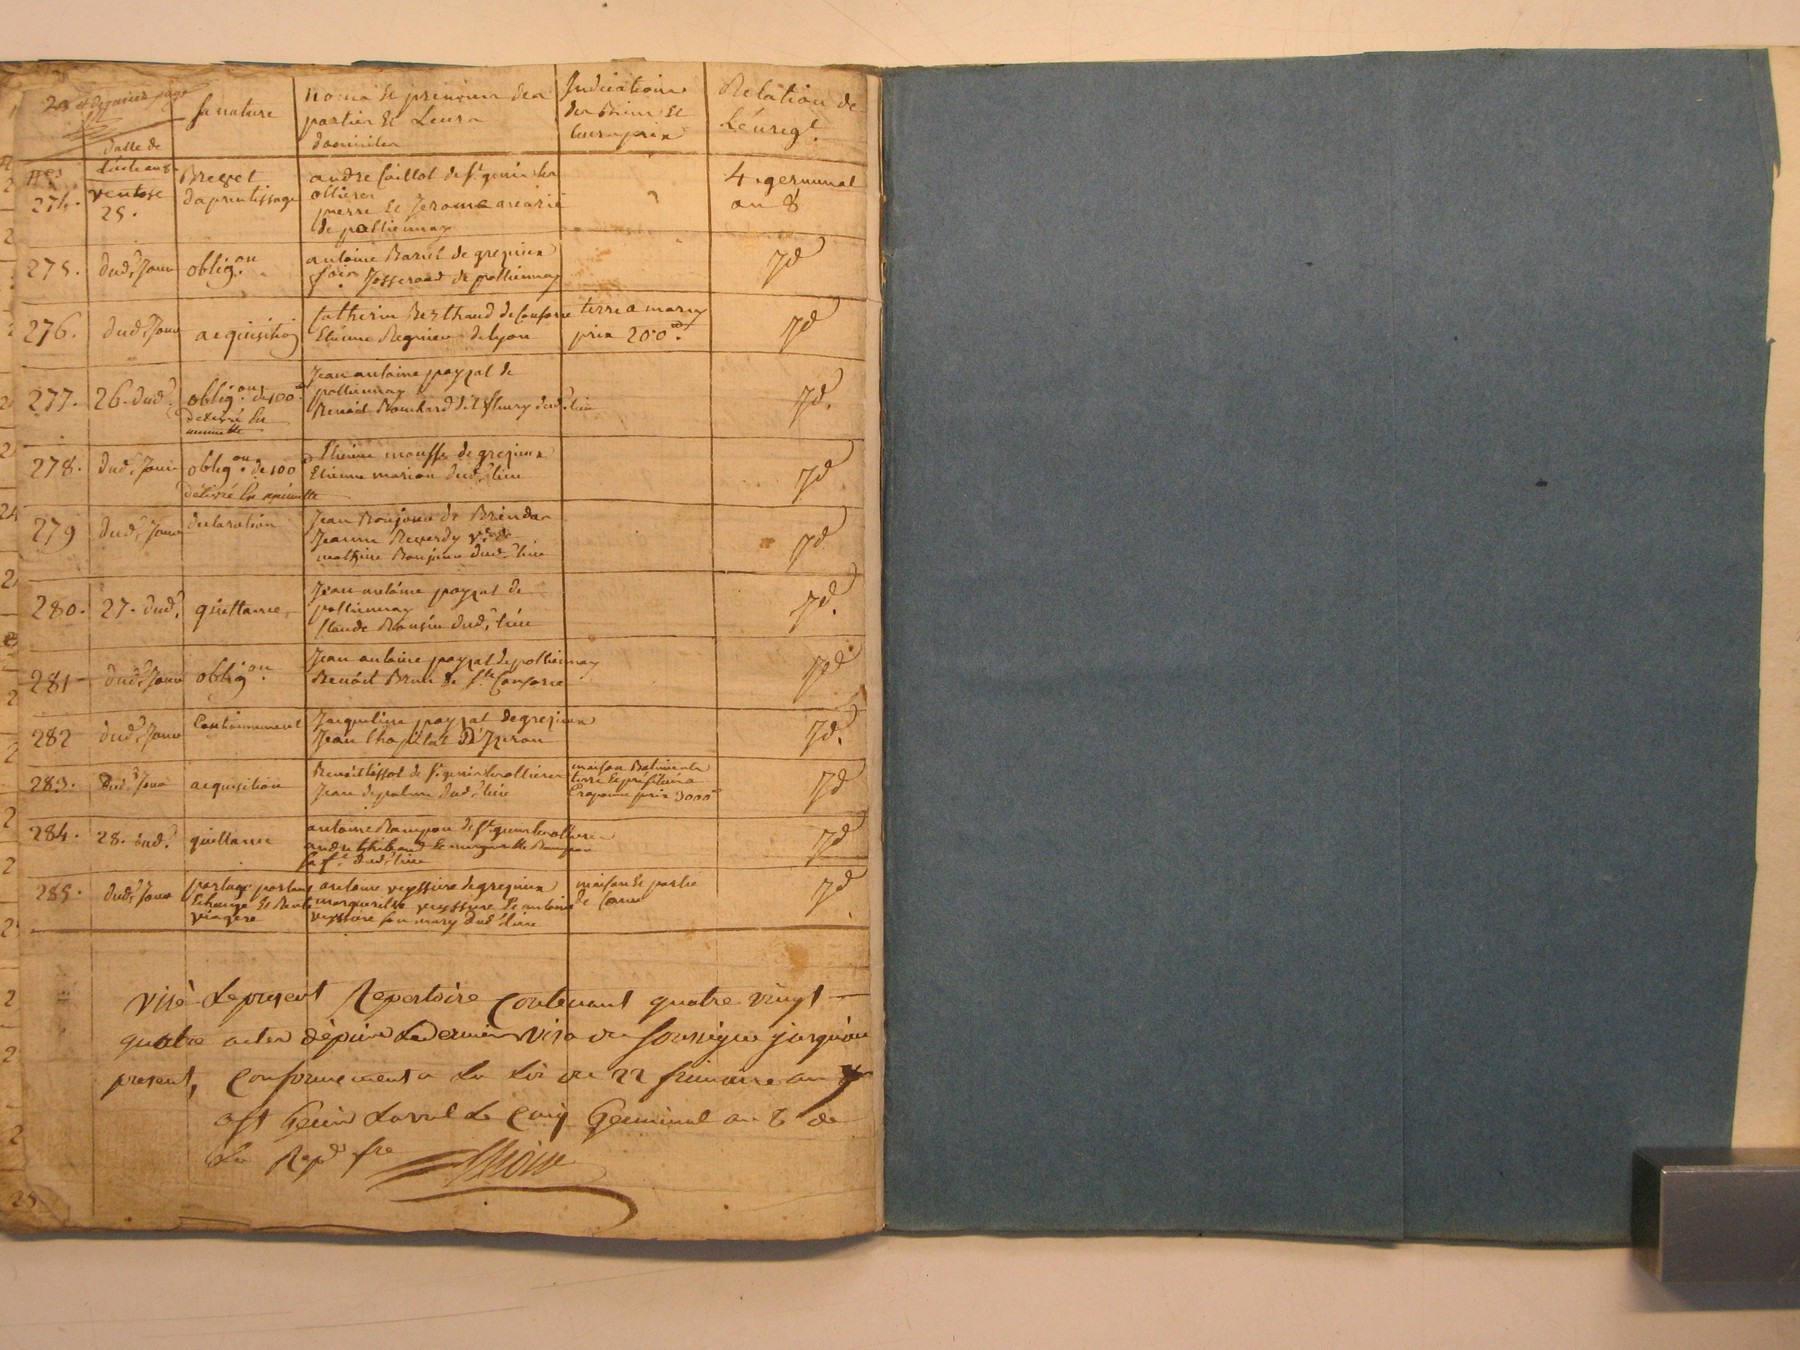 20 et dernier page
nos
datte de
Lacte an 8
Sa nature
noms et prenoms des
parties et Leurs
domiciles
Indications
des Biens et
Leurs prix
Relation de
L'énregt.
274.
ventose
25.
Brevet
daprentissage
andre Caillot de st genis les
ollieres
pierre et Jerome
de pollionnay
4. germinal
an 8
275.
dud. Jour
oblig.on
antoine de grezieux
Josserand de pollionnay
jd
276.
dud. Jour
acquisition
Catherine Berthaud de
Etienne Regnier de lyon
terre a marcy
prix 200.
jd
277.
26. dud.
oblig.on de 100
délivré En
minutte
Jean antoine payzat de
pollionnay
Benoit Bouchard dit fleury dud. lieu
jd.
278.
dud. Jour
oblig.on de 100
délivré En minutte
Etienne de grezieux
Etienne marion dud. lieu
jd
279
dud. Jour
declaration
Jean Bonjour de Brindas
Jeanne Reverdy ve de
Bonjour dud. lieu
jd
280.
27. dud.
quittance
Jean antoine payzat de
pollionnay
Claude dud. lieu
jd.
281
dud. Jour
oblig.on
Jean antoine payzat de pollionnay
Benoit Brun de ste Consorce
jd
282
dud. Jour
Cautionnement
Jacqueline payzat de grezieux
Jean
jd.
283.
Dud. Jour
acquisition
Benoit tissot de st genis les ollieres
Jean dud. lieu
maison Batiments
terre a
Craponne prix 3000
jd
284.
28. dud.
quittance
antoine Rampon de st genis les ollieres
andre thibaud et marguerite Rampon
sa fe dud. lieu
jd
285.
dud. Jour
partage portant
Echange et Rente
viagere
antoine veyssiere de grezieux
marguerite veyssiere et antoine
veyssiere son mary dud. lieu
maison et partie
de
jd
visé le present Repertoire Contenant quatre vingt
quatre actes dépuis Le dernier visa du soussigné jusqu'au
present, Conformement a la Loi du 22 frimaire an 7
a st Genis Laval Le Cinq Germinal an 8 de
la Repe. fre